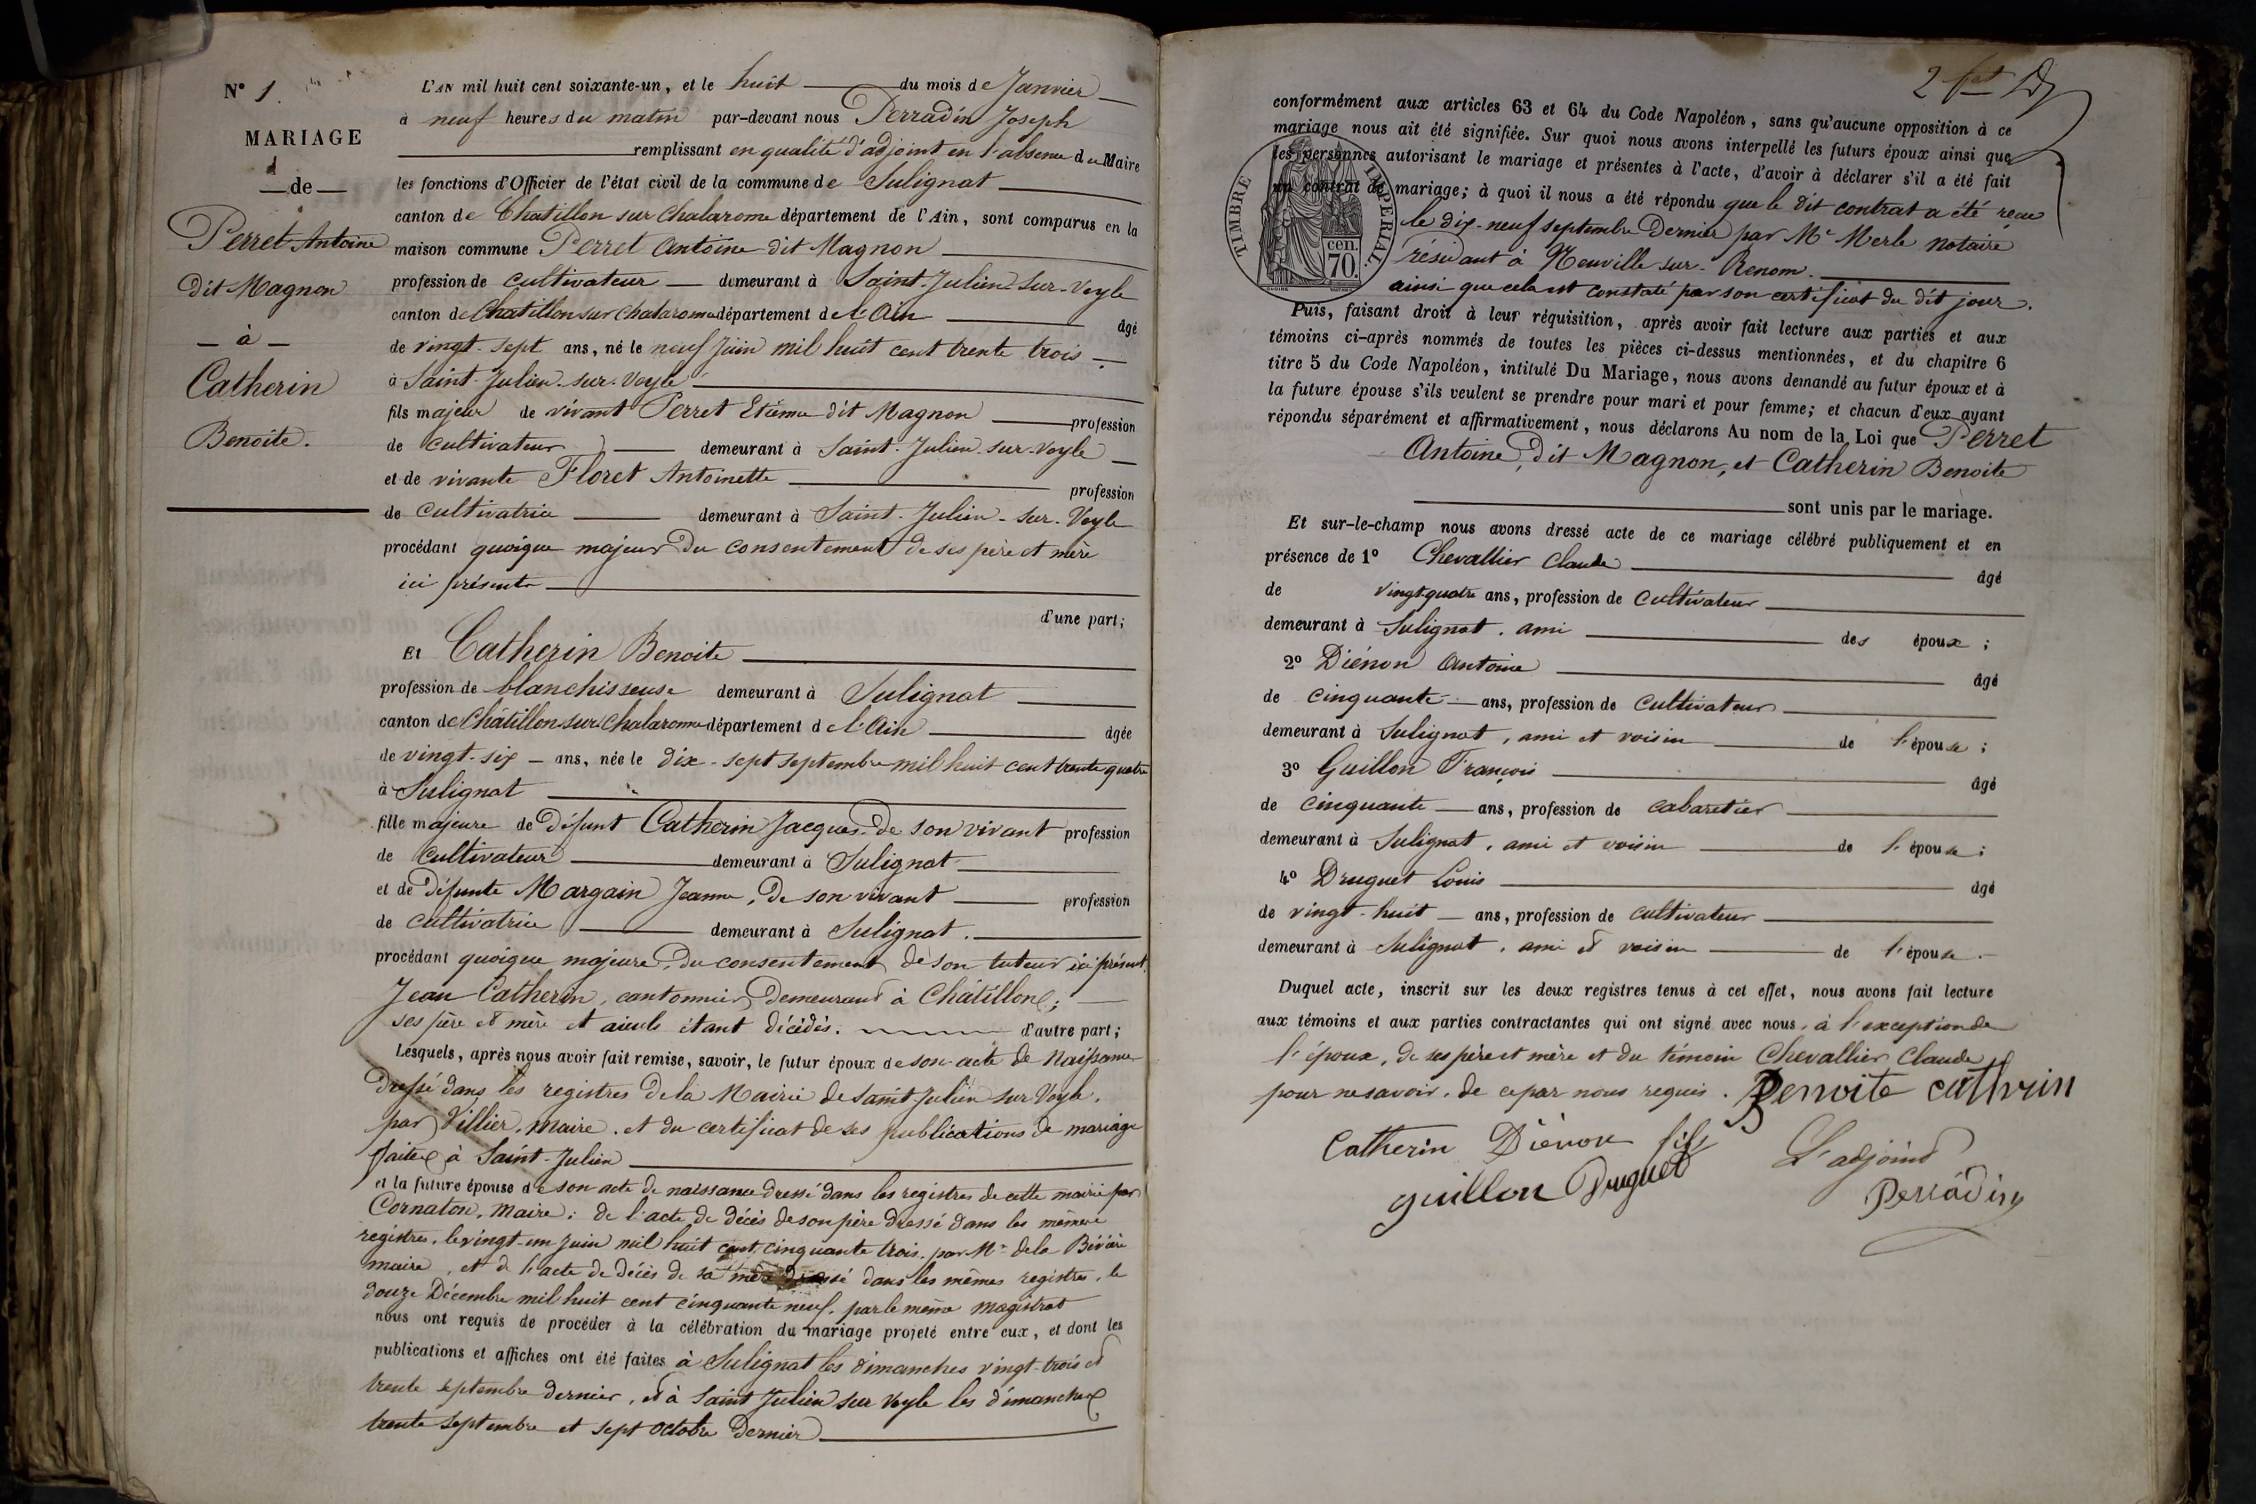 N° 1.
MARIAGE
de
Perret Antoine
dit Magnon
à
Catherin
Benoite.
L'AN mil huit cent soixante-un, et le huit du mois de Janvier
à neuf heures du matin par-devant nous Perradin Joseph
remplissant en qualité d'adjoint en l'absence du Maire
les fonctions d'Officier de l'état civil de la commune de Sulignat
canton de Chatillon sur Chalaronne département de l'Ain, sont comparus en la
maison commune Perret Antoine dit Magnon
profession de cultivateur demeurant à Saint-Julien-sur-Veyle
canton de Chatillon sur Chalaronne département de l'Ain âgé
de vingt-sept ans, né le neuf Juin mil huit cent trente trois
à Saint-Julien-sur-Veyle
fils majeur de vivant Perret Etienne dit Magnon profession
de cultivateur demeurant à Saint-Julien-sur-Veyle
et de vivante Floret Antoinette profession
de cultivatrice demeurant à Saint-Julien-sur-Veyle
procédant quoique majeur du consentement de ses père et mère
ici présents
d'une part;
Et Catherin Benoite
profession de blanchisseuse demeurant à Sulignat
canton de Châtillon sur Chalaronne département de l'Ain âgée
de vingt-six ans, née le dix-sept septembre mil huit cent trente quatre
à Sulignat
fille majeure de défunt Catherin Jacques de son vivant profession
de cultivateur demeurant à Sulignat
et de défunte Margain Jeanne, de son vivant profession
de cultivatrice demeurant à Sulignat.
procédant quoique majeure, du consentement de son tuteur ici présent,
Jean Catherin, cantonnier, demeurant à Châtillon;
ses père et mère et aieuls étant décédés. d'autre part;
Lesquels, après nous avoir fait remise, savoir, le futur époux de son acte de Naissance
dressé dans les registres de la Mairie de Saint-Julien sur Veyle,
par Villier, maire, et du certificat de ses publications de mariage
faites à Saint-Julien
et la future épouse de son acte de naissance dressé dans les registres de cette mairie par
Cornaton, maire; de l'acte de décès de son père dressé dans les mêmes
registres, le vingt-un Juin mil huit cent cinquante trois, par Mr de la Bévière
maire, et de l'acte de décès de sa mère dressé dans les mêmes registres, le
douze Décembre mil huit cent cinquante neuf, par le même magistrat
nous ont requis de procéder à la célébration du mariage projeté entre eux, et dont les
publications et affiches ont été faites à Sulignat les dimanches vingt-trois et
trente septembre dernier, et à Saint Julien sur Veyle les dimanches
trente septembre et sept octobre dernier
conformément aux articles 63 et 64 du Code Napoléon, sans qu'aucune opposition à ce
mariage nous ait été signifiée. Sur quoi nous avons interpellé les futurs époux ainsi que
les personnes autorisant le mariage et présentes à l'acte, d'avoir à déclarer s'il a été fait
un contrat de mariage; à quoi il nous a été répondu que le dit contrat a été reçu
le dix-neuf septembre dernier par Me Merle notaire
résidant à Neuville-sur-Renom.
ainsi que cela est constaté par son certificat du dit jour.
TIMBRE IMPERIAL.
cen.
70.
Puis, faisant droit à leur réquisition, après avoir fait lecture aux parties et aux
témoins ci-après nommés de toutes les pièces ci-dessus mentionnées, et du chapitre 6
titre 5 du Code Napoléon, intitulé Du Mariage, nous avons demandé au futur époux et à
la future épouse s'ils veulent se prendre pour mari et pour femme; et chacun d'eux ayant
répondu séparément et affirmativement, nous déclarons Au nom de la Loi que Perret
Antoine, dit Magnon, et Catherin Benoite
sont unis par le mariage.
Et sur-le-champ nous avons dressé acte de ce mariage célébré publiquement et en
présence de 1° Chevallier Claude âgé
de vingt quatre ans, profession de cultivateur
demeurant à Sulignat, ami des époux;
2° Diénon Antoine âgé
de cinquante ans, profession de cultivateur
demeurant à Sulignat, ami et voisin de l'épouse;
3° Guillon François âgé
de cinquante ans, profession de cabaretier
demeurant à Sulignat, ami et voisin de l'épouse;
4° Druguet Louis âgé
de vingt-huit ans, profession de cultivateur
demeurant à Sulignat, ami et voisin de l'épouse.
Duquel acte, inscrit sur les deux registres tenus à cet effet, nous avons fait lecture
aux témoins et aux parties contractantes qui ont signé avec nous, à l'exception de
l'époux, de ses père et mère et du témoin Chevallier Claude
pour ne savoir, de ce par nous requis. Benoite cathrin
Catherin Diénon fils L'adjoint
guillon Druguet Perradin